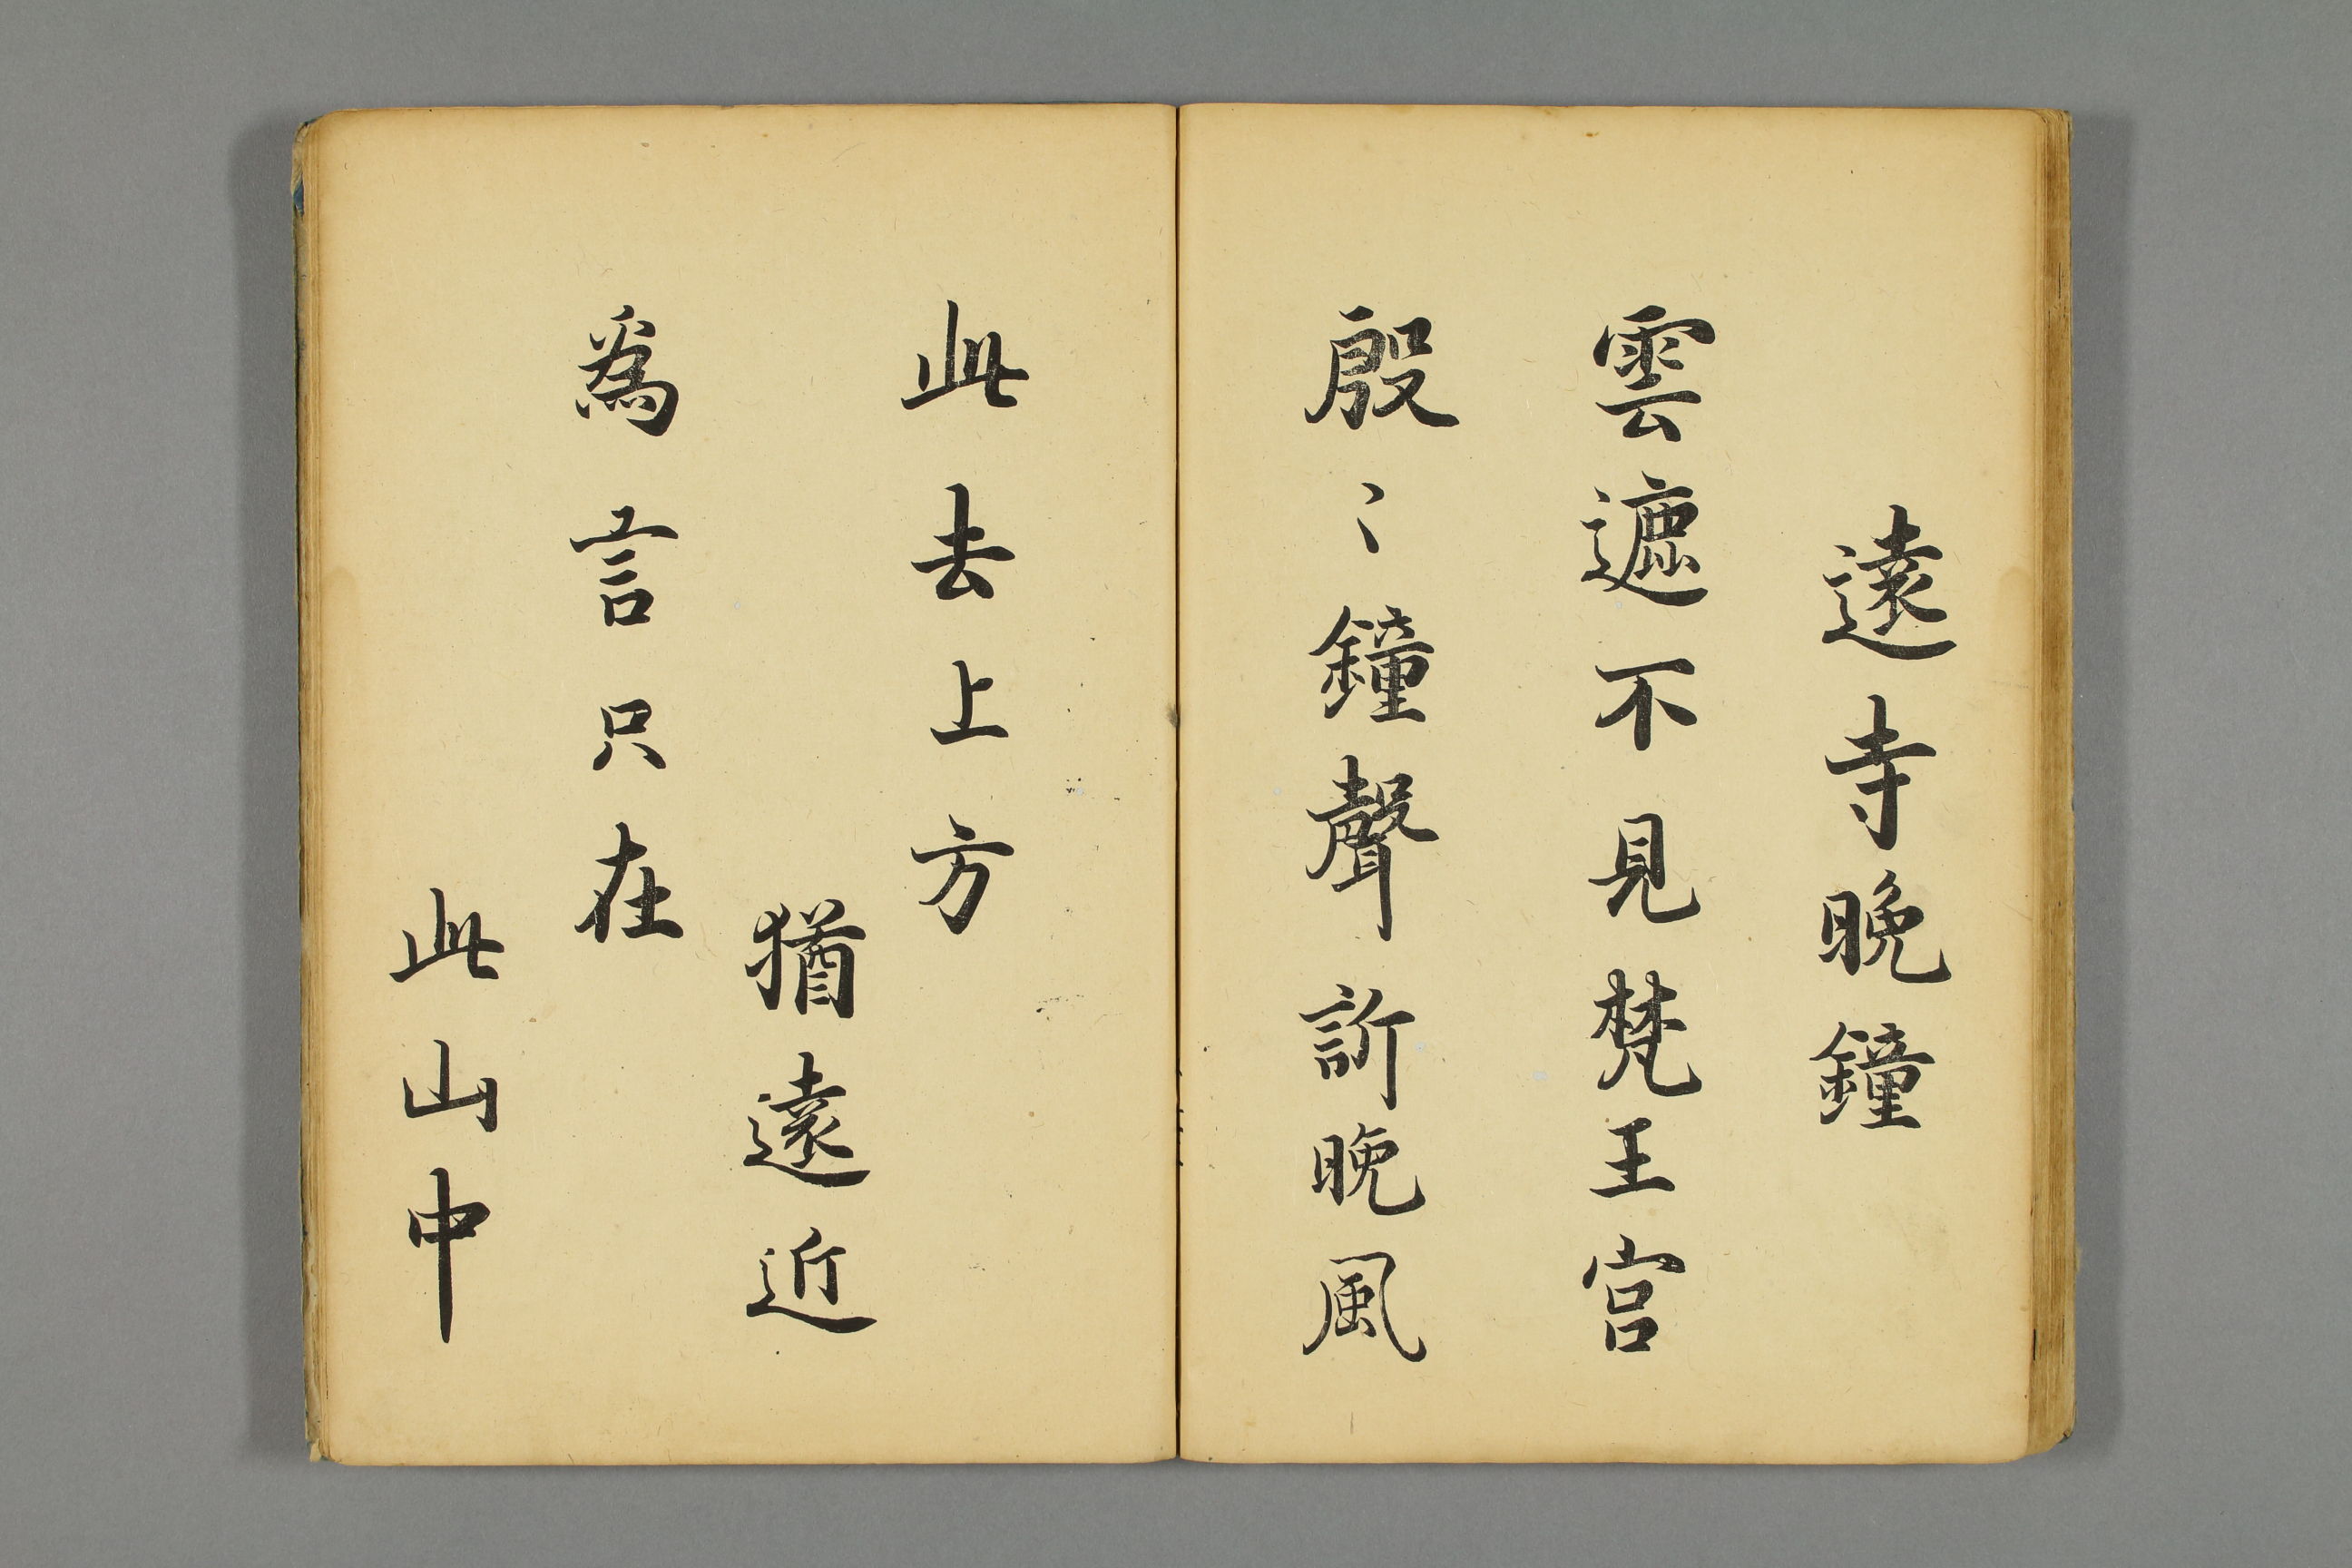 遠寺晩鐘
雲遮不見梵王宮
殷〻鐘聲訴晩風
此去上方
猶遠近
爲言只在
此山中